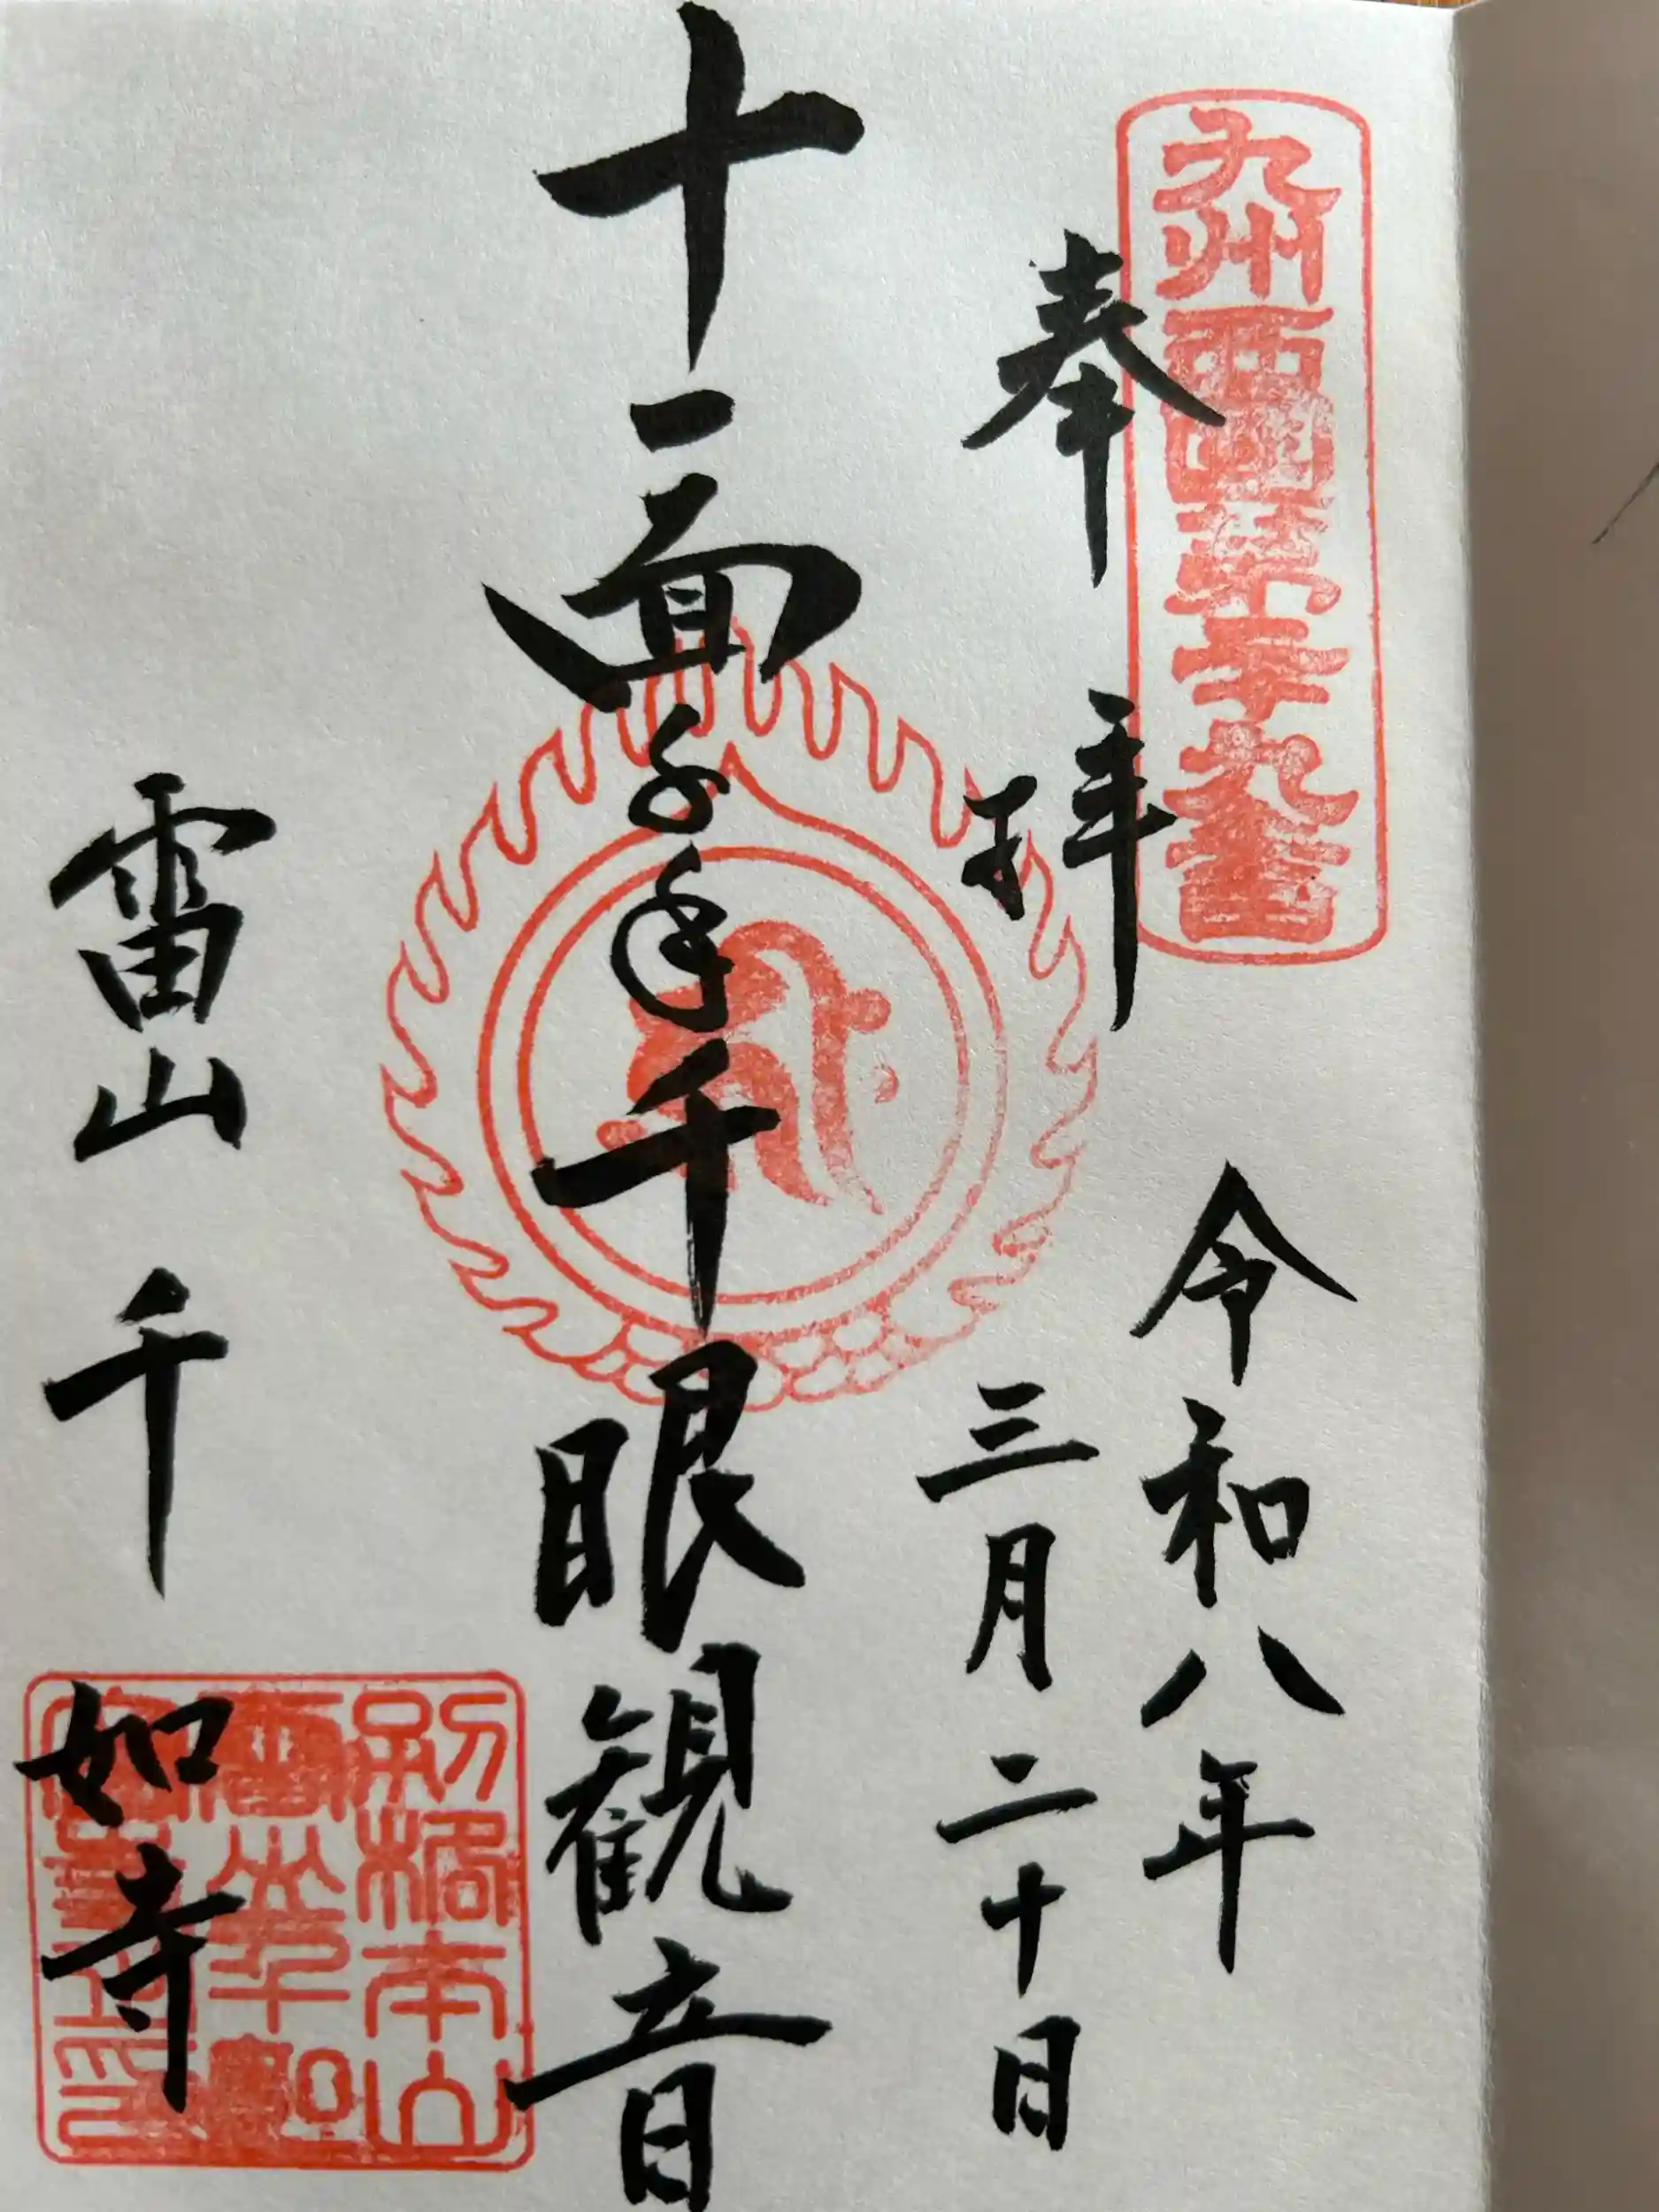 九州西国第二十九番
奉拝
令和八年
三月二十日
十一面千手千眼観音
雷山 千如寺